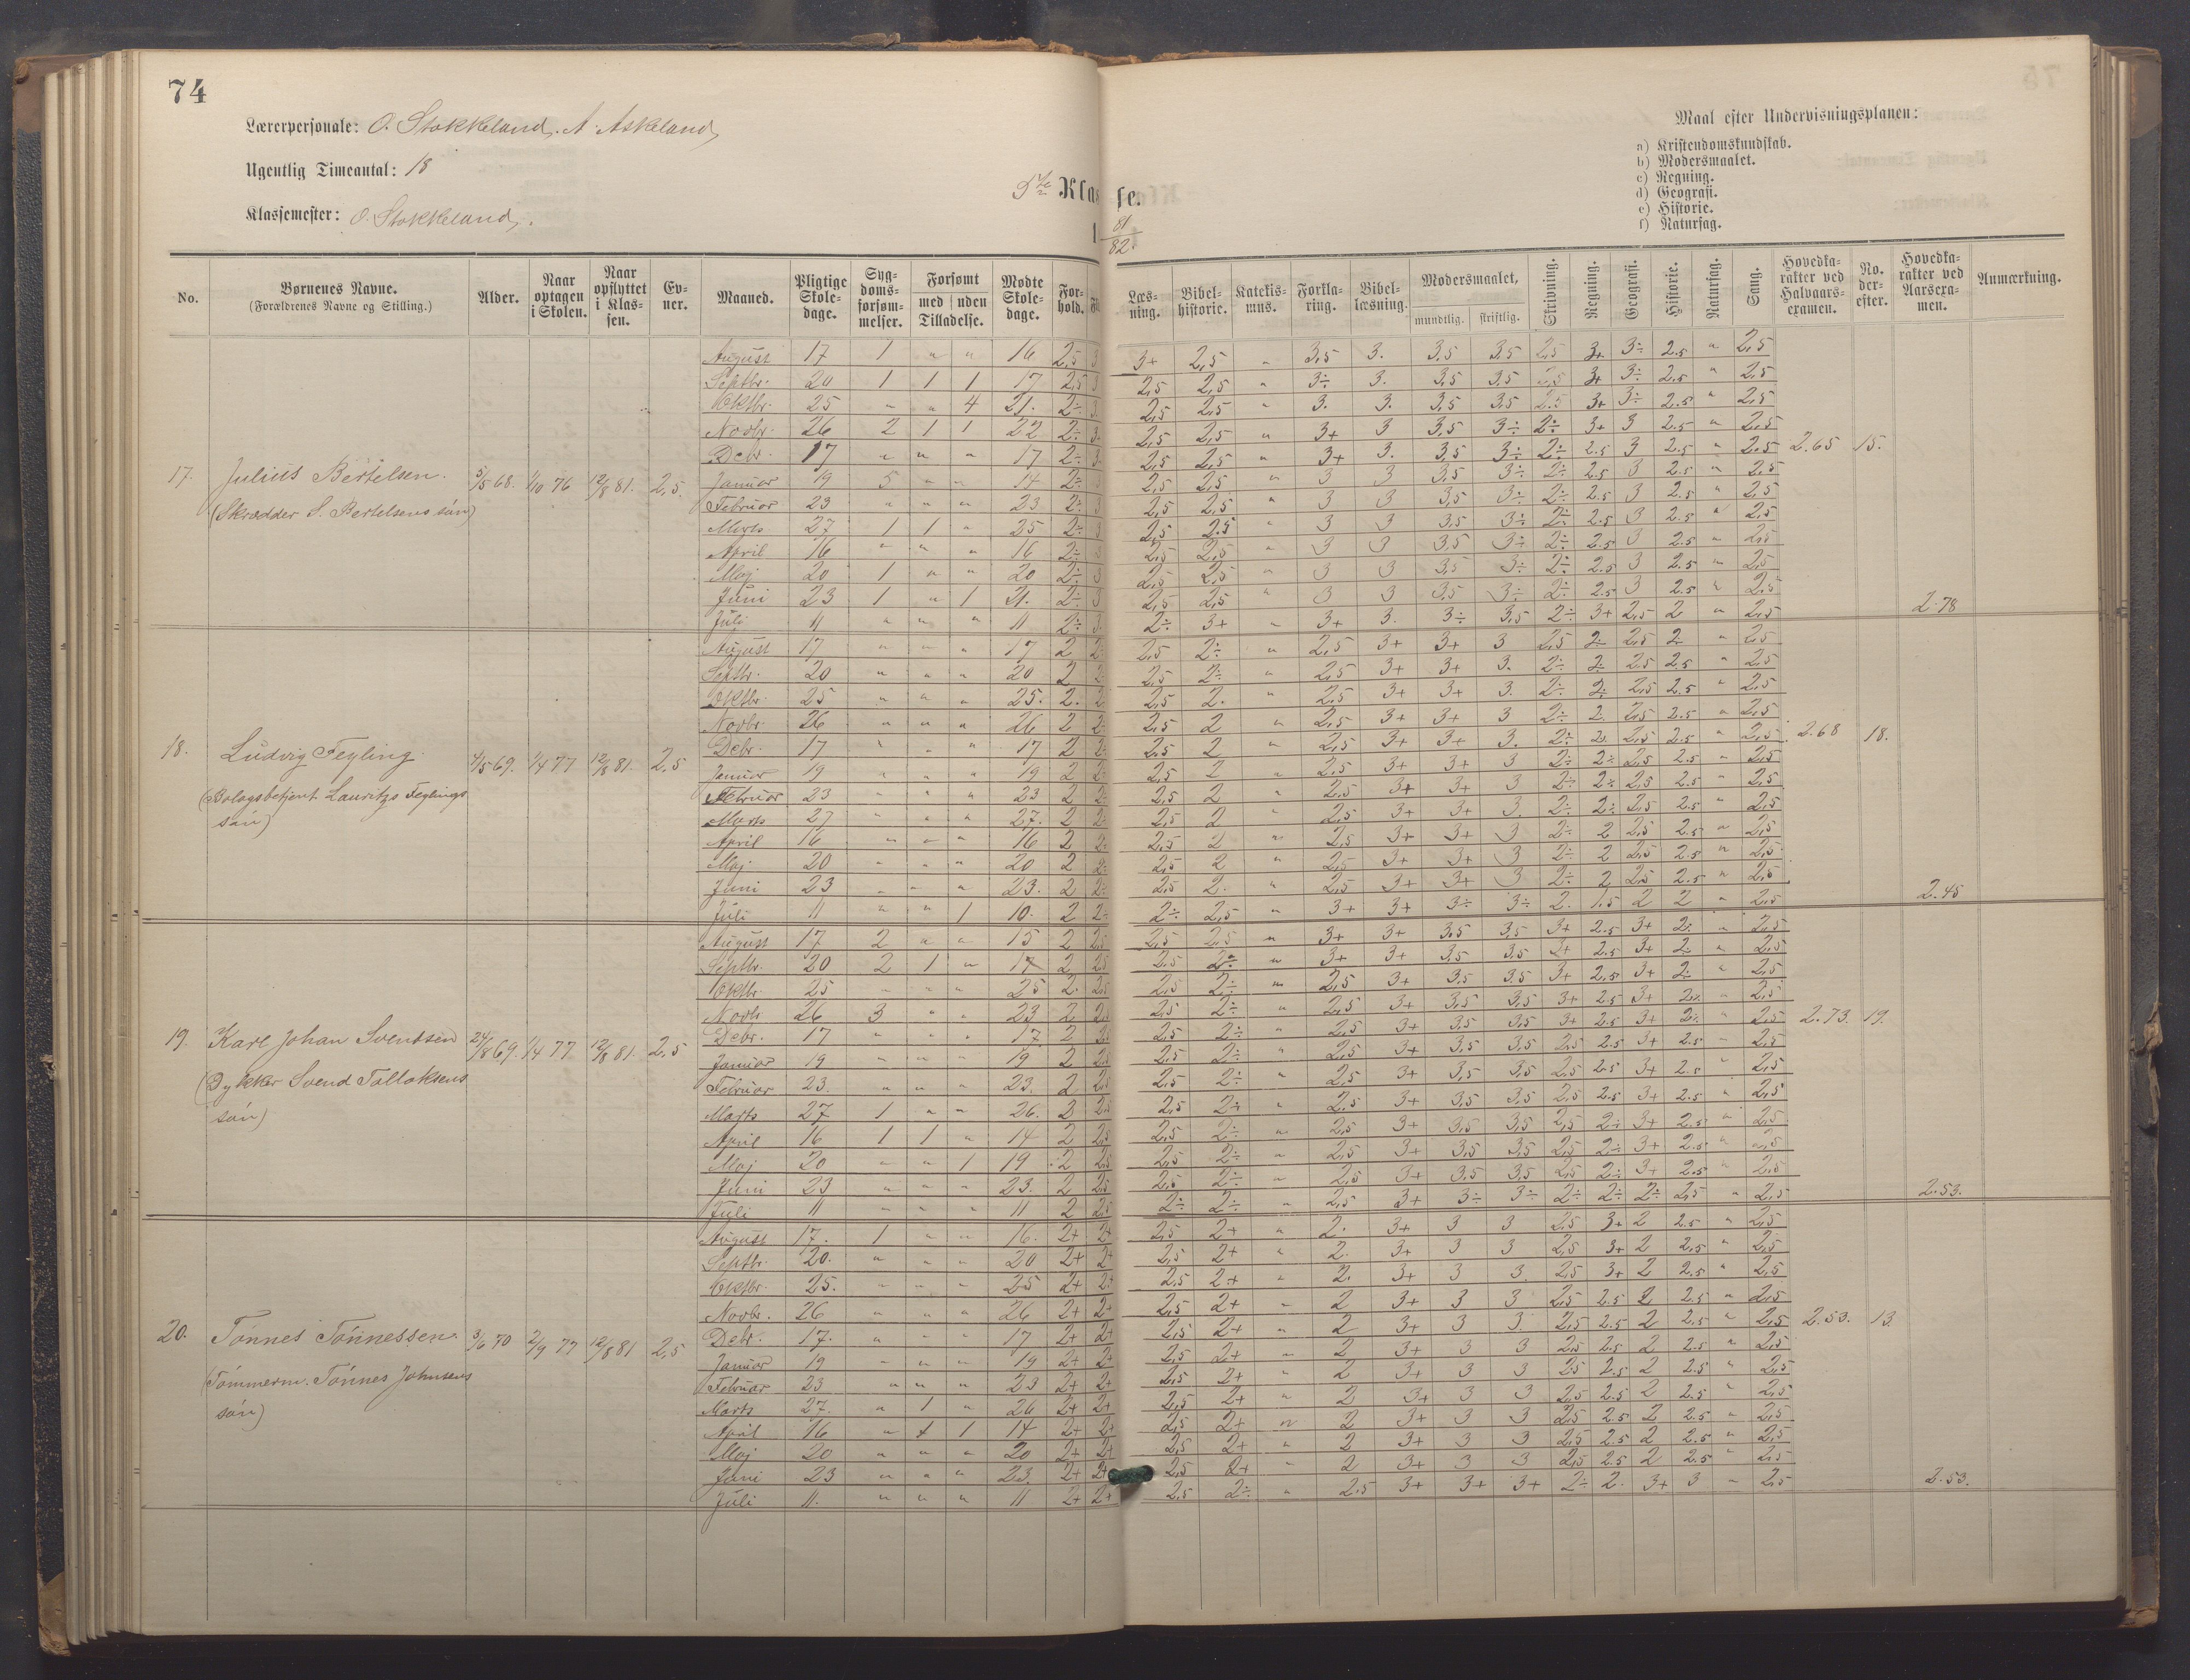 74
Lærerpersonale: O. Stokkeland, A. Askeland,
Ugentlig Timeantal: 18
Klassemester: O. Stokkeland.
5te Klasse.
81/82.
Maal efter Undervisningsplanen:
a) Kristendomskundskab.
b) Modersmaalet.
c) Regning.
d) Geografi.
e) Historie.
f) Naturfag.
No. | Børnenes Navne. (Forældrenes Navne og Stilling.) | Alder. | Naar optagen i Skolen. | Naar opflyttet i Klassen. | Evner. | Maaned. | Pligtige Skoledage. | Sygdomsforsømmelser. | Forsømt med / uden Tilladelse. | Mødte Skoledage. | Forhold. | Læsning. | Bibelhistorie. | Katekismus. | Forklaring. | Bibellæsning. | Modersmaalet, mundtlig. | skriftlig. | Skrivning. | Regning. | Geografi. | Historie. | Naturfag. | Sang. | Hovedkarakter ved Halvaarsexamen. | No. derefter. | Hovedkarakter ved Aarsexamen. | Anmærkning.
17. Julius Bertelsen. 5/5 68. 1/10 76 12/8 81. 2,5.
(Skrædder S. Bertelsens søn)
August 17 1 " " 16 2,5 3 | 3+ 2,5 " 3,5 3. 3,5 3,5 2,5 3+ 3÷ 2.5 " 2,5
Septbr. 20 1 1 1 17 2,5 3 | 2,5 2,5 " 3÷ 3. 3,5 3,5 2,5 3+ 3÷ 2.5 " 2,5
Oktbr. 25 " " 4 21. 2÷ 3. | 2,5 2,5 " 3. 3. 3,5 3,5 2.5 3+ 3÷ 2.5 " 2,5
Novbr. 26 2 1 1 22 2÷ 3. | 2,5 2,5 " 3+ 3 3,5 3÷ 2÷ 3+ 3 2.5 " 2,5
Debr. 17 " " " 17 2÷ 3. | 2,5 2,5 " 3+ 3. 3,5 3÷ 2÷ 2.5 3 2.5 " 2.5 2.65 15.
Januar 19 5 " " 14 2÷ 3 | 2,5 2,5 " 3 3 3,5 3÷ 2÷ 2.5 3 2.5 " 2,5
Februar 23 " " " 23 2÷ 3 | 2,5 2,5 " 3 3 3,5 3÷ 2÷ 2.5 3 2.5 " 2,5
Marts 27 1 1 " 25 2÷ 3 | 2,5 2.5 " 3 3 3,5 3÷ 2÷ 2.5 3 2.5 " 2,5
April 16 " " " 16 2÷ 3 | 2,5 2,5 " 3 3 3,5 3÷ 2÷ 2.5 3 2.5 " 2,5
Maj 20 1 " " 20 2÷ 3 | 2,5 2,5 " 3 3 3,5 3÷ 2÷ 2.5 3 2.5 " 2,5
Juni 23 1 " 1 21. 2÷ 3 | 2,5 2,5 " 3 3 3,5 3÷ 2÷ 2.5 3 2.5 " 2,5
Juli 11 " " " 11 2÷ 3. | 2÷ 3+ " 3+ 3. 3÷ 3,5 2÷ 3+ 2,5 2 " 2,5 2.78
18. Ludvig Feyling. 4/5 69. 1/4 77 12/8 81. 2,5
(Bolagsbetjent Lauritz Feylings
søn)
August 17 " " " 17 2 2÷ | 2,5 2÷ " 2,5 3+ 3+ 3 2,5 2÷ 2,5 2 " 2,5
Septbr. 20 " " " 20 2 2÷ | 2,5 2÷ " 2,5 3+ 3+ 3. 2÷ 2÷ 2.5 2.5 " 2,5
Oktbr. 25 " " " 25. 2. 2÷ | 2,5 2. " 2,5 3+ 3+ 3. 2÷ 2÷ 2,5 2.5 " 2,5
Novbr 26 " " " 26 2 2÷ | 2,5 2 " 2,5 3+ 3+ 3 2÷ 2. 2,5 2.5 " 2,5
Debr. 17 " " " 17 2 2÷ | 2,5 2 " 2,5 3+ 3+ 3. 2÷ 2. 2,5 2.5 " 2,5 2.68 18.
Januar 19 " " " 19 2 2÷ | 2,5 2 " 2,5 3+ 3+ 3 2÷ 2÷ 2,5 2.5 " 2,5
Februar 23 " " " 23 2 2÷ | 2,5 2 " 2,5 3+ 3+ 3 2÷ 2÷ 2,5 2.5 " 2,5
Marts 27 " " " 27. 2 2÷ | 2,5 2 " 2,5 3+ 3+ 3. 2÷ 2÷ 2,5 2.5 " 2,5
April 16 " " " 16 2 2÷ | 2,5 2 " 2,5 3+ 3+ 3 2÷ 2 2,5 2.5 " 2,5
Maj 20 " " " 20 2 2÷ | 2,5 2 " 2,5 3+ 3+ 3 2÷ 2 2,5 2.5 " 2,5
Juni 23 " " " 23. 2 2÷ | 2,5 2. " 2,5 3+ 3+ 3 2÷ 2 2,5 2.5 " 2,5
Juli 11 " " 1 10. 2 2÷ | 2÷ 2,5 " 3+ 3+ 3÷ 3÷ 2. 1.5 2 2 " 2,5 2.45
19. Karl Johan Svendsen 24/8 69. 1/4 77 12/8 81. 2,5
(Dykker Svend Tallaksens
søn)
August 17 2 " " 15 2 2,5 | 2,5 2,5 " 3+ 3+ 3,5 3,5 3+ 2.5 3+ 2÷ " 2,5
Septbr. 20 2 1 " 17 2 2,5 | 2,5 2÷ " 3+ 3+ 3,5 3,5 3+ 2.5 3+ 2÷ " 2,5
Oktbr. 25 " " " 25 2. 2,5 | 2,5 2÷ " 2,5 3+ 3,5 3,5 3+ 2.5 3+ 2÷ " 2,5
Novb 26 3 " " 23 2 2,5 | 2,5 2÷ " 2,5 3+ 3,5 3,5 3+ 2.5 3+ 2÷ " 2,5
Debr. 17 " " " 17 2 2,5 | 2,5 2÷ " 2,5 3+ 3,5 3,5 3+ 2.5 3+ 2÷ " 2,5 2.73. 19.
Januar 19 " " " 19 2 2,5 | 2,5 2÷ " 2,5 3+ 3,5 3,5 2,5 2.5 3+ 2.5 " 2,5
Februar 23. " " " 23. 2 2,5 | 2,5 2÷ " 2,5 3+ 3,5 3,5 2,5 2.5 3+ 2.5 " 2,5
Marts 27 1 " " 26. 2 2,5 | 2,5 2÷ " 2,5 3+ 3,5 3,5 2,5 2.5 3+ 2.5 " 2,5
April 16 1 1 " 14 2 2,5 | 2,5 2÷ " 2,5 3+ 3,5 3,5 2,5 2÷ 3+ 2.5 " 2,5
Maj 20 " " 1 19 2 2,5 | 2,5 2÷ " 2,5 3+ 3,5 3,5 2,5 2÷ 3+ 2.5 " 2,5
Juni 23 " " " 23. 2 2,5 | 2,5 2÷ " 2,5 3+ 3,5 3,5 2,5 2÷ 3+ 2.5 " 2,5
Juli 11 " " " 11 2 2,5 | 2÷ 2÷ " 2,5 3+ 3÷ 3÷ 2÷ 2÷ 2÷ 2,5 " 2,5 2.53.
20. Tønnes Tønnessen. 3/6 70 2/9 77 12/8 81 2,5
(Tømmerm. Tønnes Johnsens
søn)
August 17. 1 " " 16. 2+ 2+ | 2,5 2+ " 2. 3+ 3 3 2,5 3+ 2 2.5 " 2,5
Septbr. 20. " " " 20 2+ 2+ | 2,5 2+ " 2. 3+ 3 3 2,5 3+ 2 2.5 " 2,5
Oktbr. 25. " " " 25 2+ 2+ | 2,5 2+ " 2. 3+ 3 3. 2,5 3+ 2 2.5 " 2,5
Novbr. 26 " " " 26 2+ 2+ | 2,5 2+ " 2 3+ 3 3 2,5 2.5 2 2.5 " 2,5
Debr. 17. " " " 17 2+ 2+ | 2,5 2+ " 2 3+ 3 3. 2,5 2.5 2 2.5 " 2,5 2.53. 13.
Januar 19 " " " 19 2+ 2+ | 2,5 2+ " 2 3+ 3 3 2,5 2.5 2 2.5 " 2,5
Februar 23 " " " 23 2+ 2+ | 2,5 2+ " 2 3+ 3 3 2,5 2.5 2 2.5 " 2,5
Marts 27. " 1 " 26 2+ 2+ | 2,5 2+ " 2 3+ 3 3 2,5 2.5 2 2.5 " 2,5
April 16 " 1 1 14 2+ 2+ | 2,5 2+ " 2 3+ 3 3 2,5 2.5 2 2.5 " 2,5
Maj 20 " " " 20 2+ 2+ | 2,5 2+ " 2 3+ 3 3 2,5 2.5 2 2.5 " 2,5
Juni 23 " " " 23. 2+ 2+ | 2,5 2+ " 2 3+ 3 3 2,5 2.5 2 2.5 " 2,5
Juli 11. " " " 11 2+ 2+ | 2,5 2÷ " 2.5 3+ 3+ 3+ 2÷ 2. 3+ 3 " 2,5 2.53.